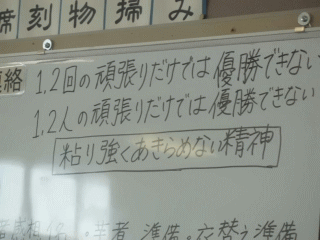 席 刻 物 掃 み
連絡 1,2回の頑張りだけでは優勝できない
1,2人の頑張りだけでは優勝できない
粘り強くあきらめない精神
準備・衣替え準備